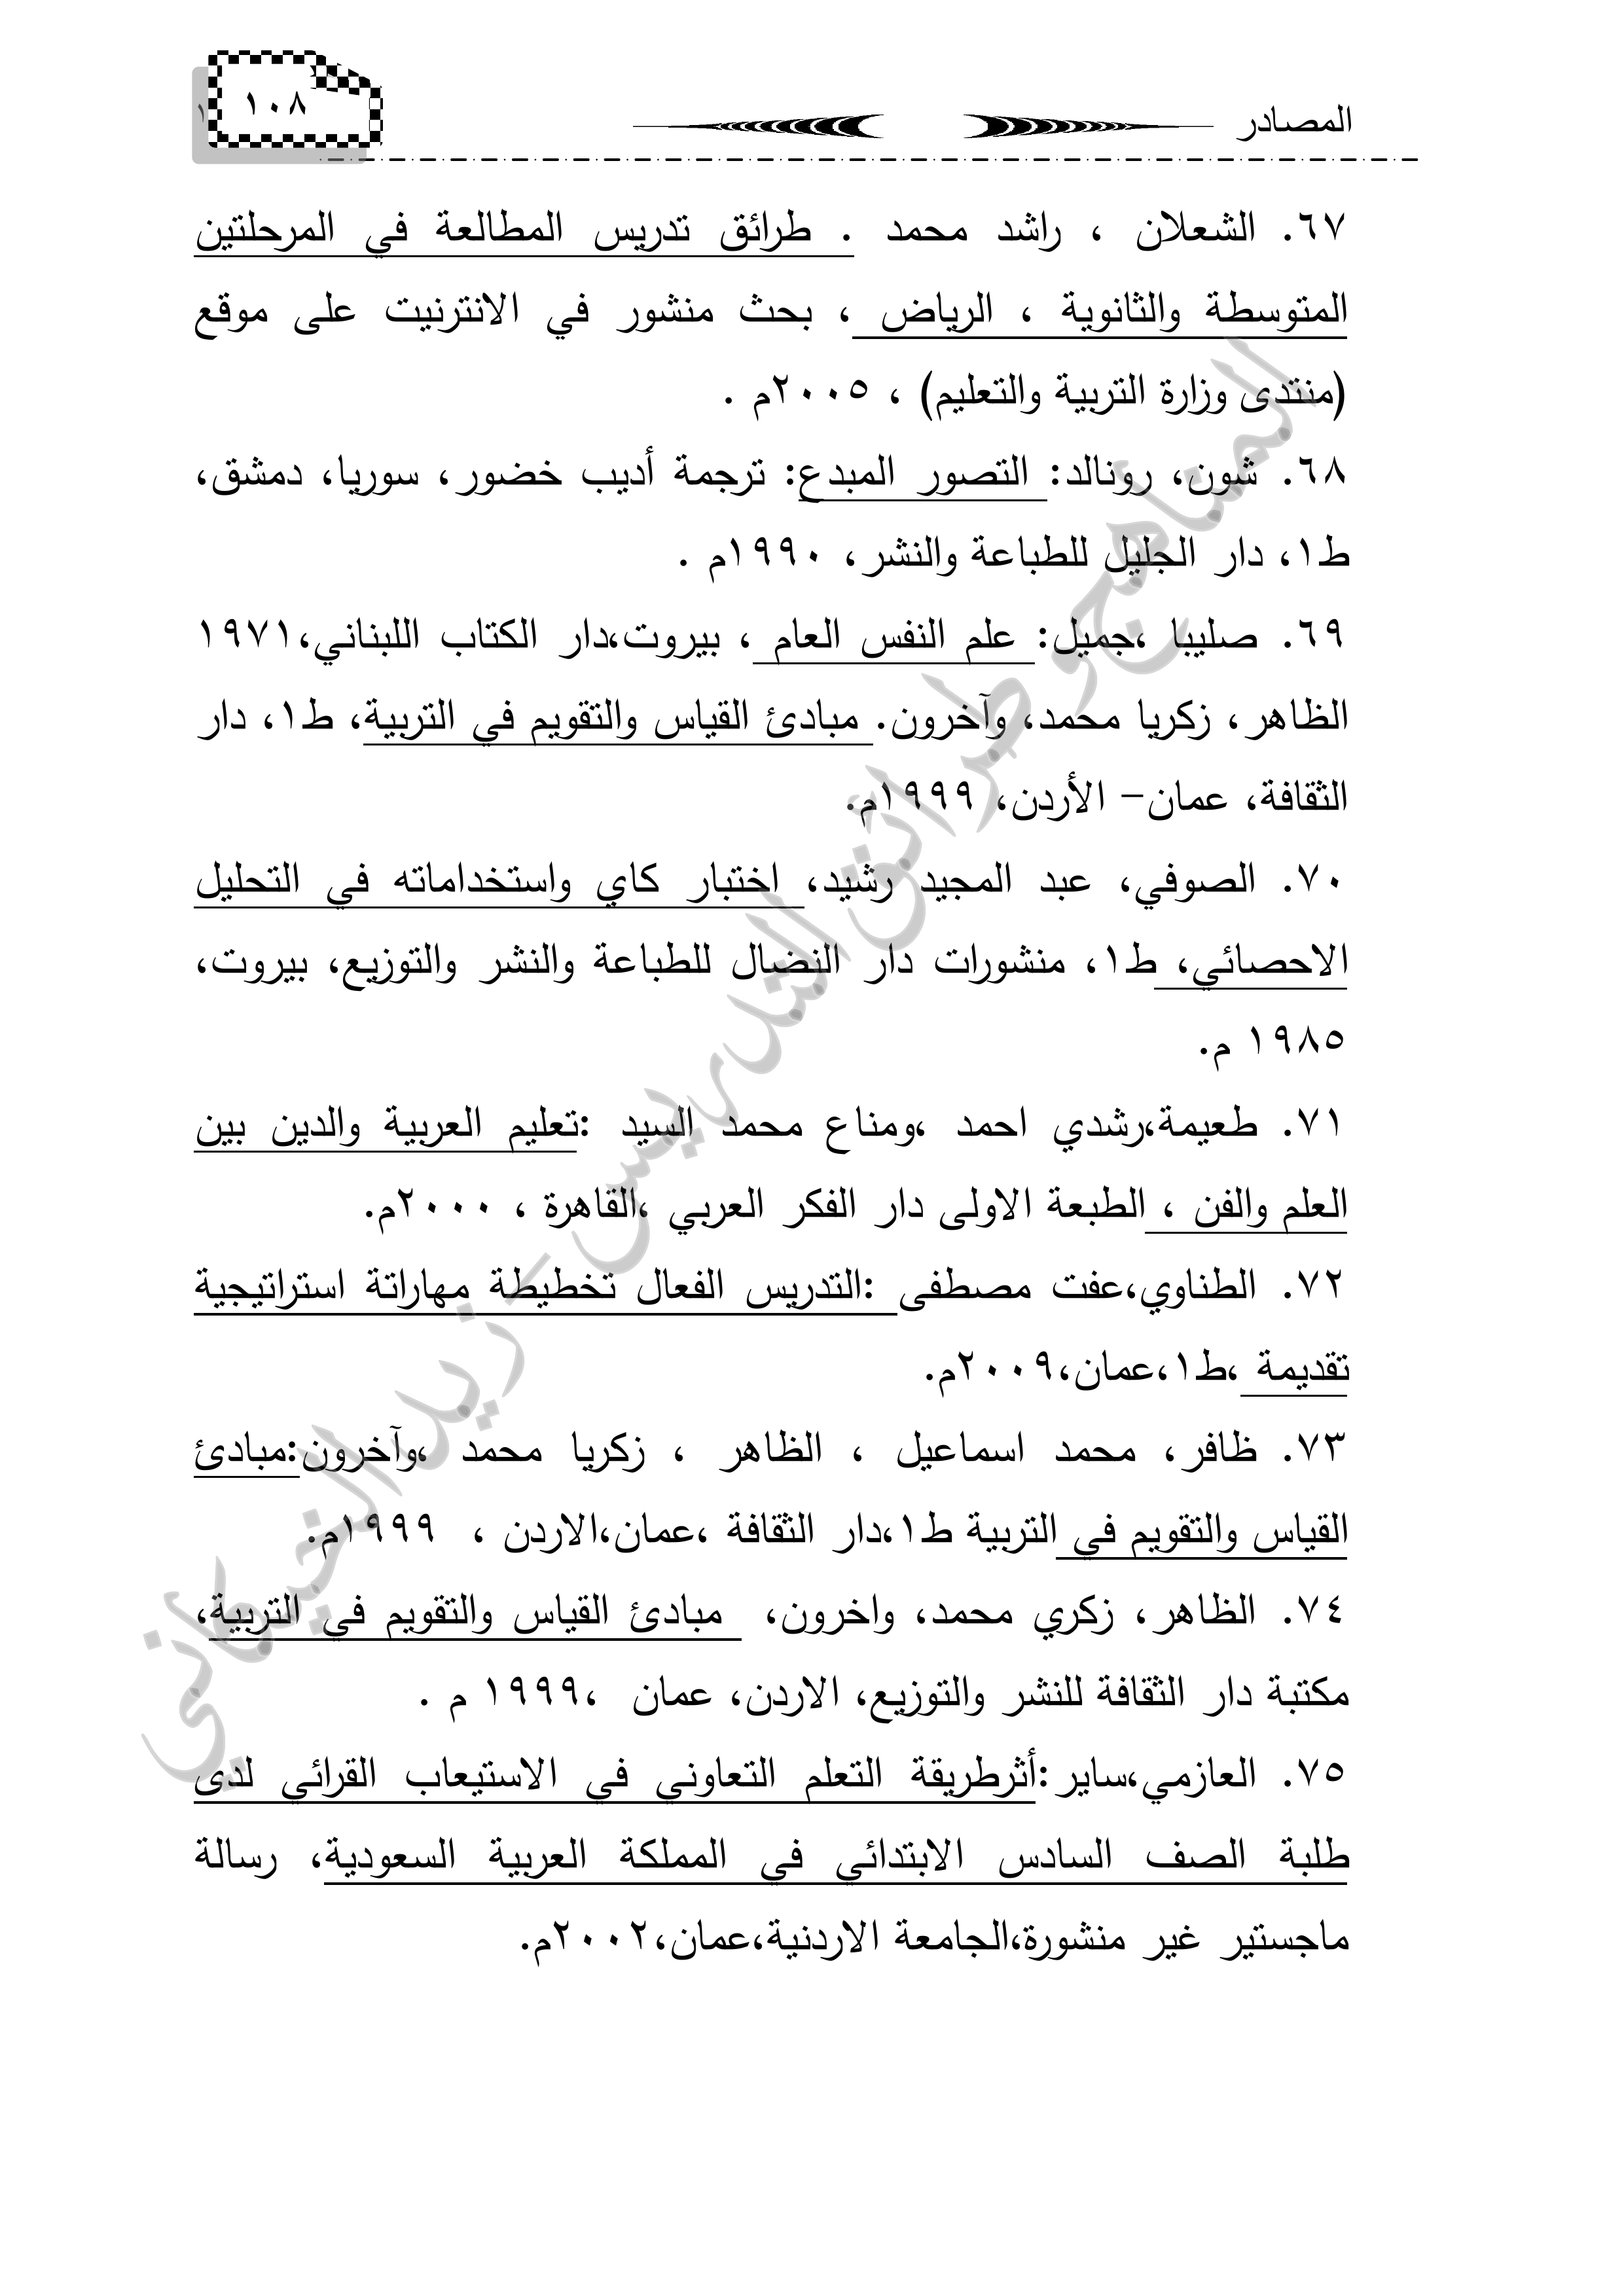 المصادر
١٠٨
٦٧. الشعلان ، راشد محمد . طرائق تدريس المطالعة في المرحلتين
المتوسطة والثانوية ، الرياض ، بحث منشور في الانترنيت على موقع
(منتدى وزارة التربية والتعليم) ، ٢٠٠٥م .
٦٨. شون، رونالد: التصور المبدع: ترجمة أديب خضور، سوريا، دمشق،
ط١، دار الجليل للطباعة والنشر، ١٩٩٠م .
٦٩. صليبا ،جميل: علم النفس العام ، بيروت،دار الكتاب اللبناني،١٩٧١
الظاهر، زكريا محمد، وآخرون. مبادئ القياس والتقويم في التربية، ط١، دار
الثقافة، عمان– الأردن، ١٩٩٩م.
٧٠. الصوفي، عبد المجيد رشيد، اختبار كاي واستخداماته في التحليل
الاحصائي، ط١، منشورات دار النضال للطباعة والنشر والتوزيع، بيروت،
١٩٨٥ م.
٧١. طعيمة،رشدي احمد ،ومناع محمد السيد :تعليم العربية والدين بين
العلم والفن ، الطبعة الاولى دار الفكر العربي ،القاهرة ، ٢٠٠٠م.
٧٢. الطناوي،عفت مصطفى :التدريس الفعال تخطيطة مهاراتة استراتيجية
تقديمة ،ط١،عمان،٢٠٠٩م.
٧٣. ظافر، محمد اسماعيل ، الظاهر ، زكريا محمد ،وآخرون:مبادئ
القياس والتقويم في التربية ط١،دار الثقافة ،عمان،الاردن ، ١٩٩٩م.
٧٤. الظاهر، زكري محمد، واخرون، مبادئ القياس والتقويم في التربية،
مكتبة دار الثقافة للنشر والتوزيع، الاردن، عمان ،١٩٩٩ م .
٧٥. العازمي،ساير:أثرطريقة التعلم التعاوني في الاستيعاب القرائي لدى
طلبة الصف السادس الابتدائي في المملكة العربية السعودية، رسالة
ماجستير غير منشورة،الجامعة الاردنية،عمان،٢٠٠٢م.
المناهج و طرائق التدريس – زيد الخيكاني